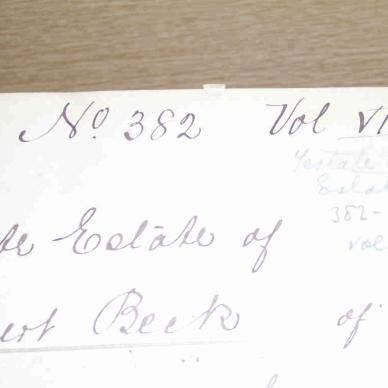 No 382 Vol VI
Testate
Estat
382-
Vol
te Estate of
ert Beck of